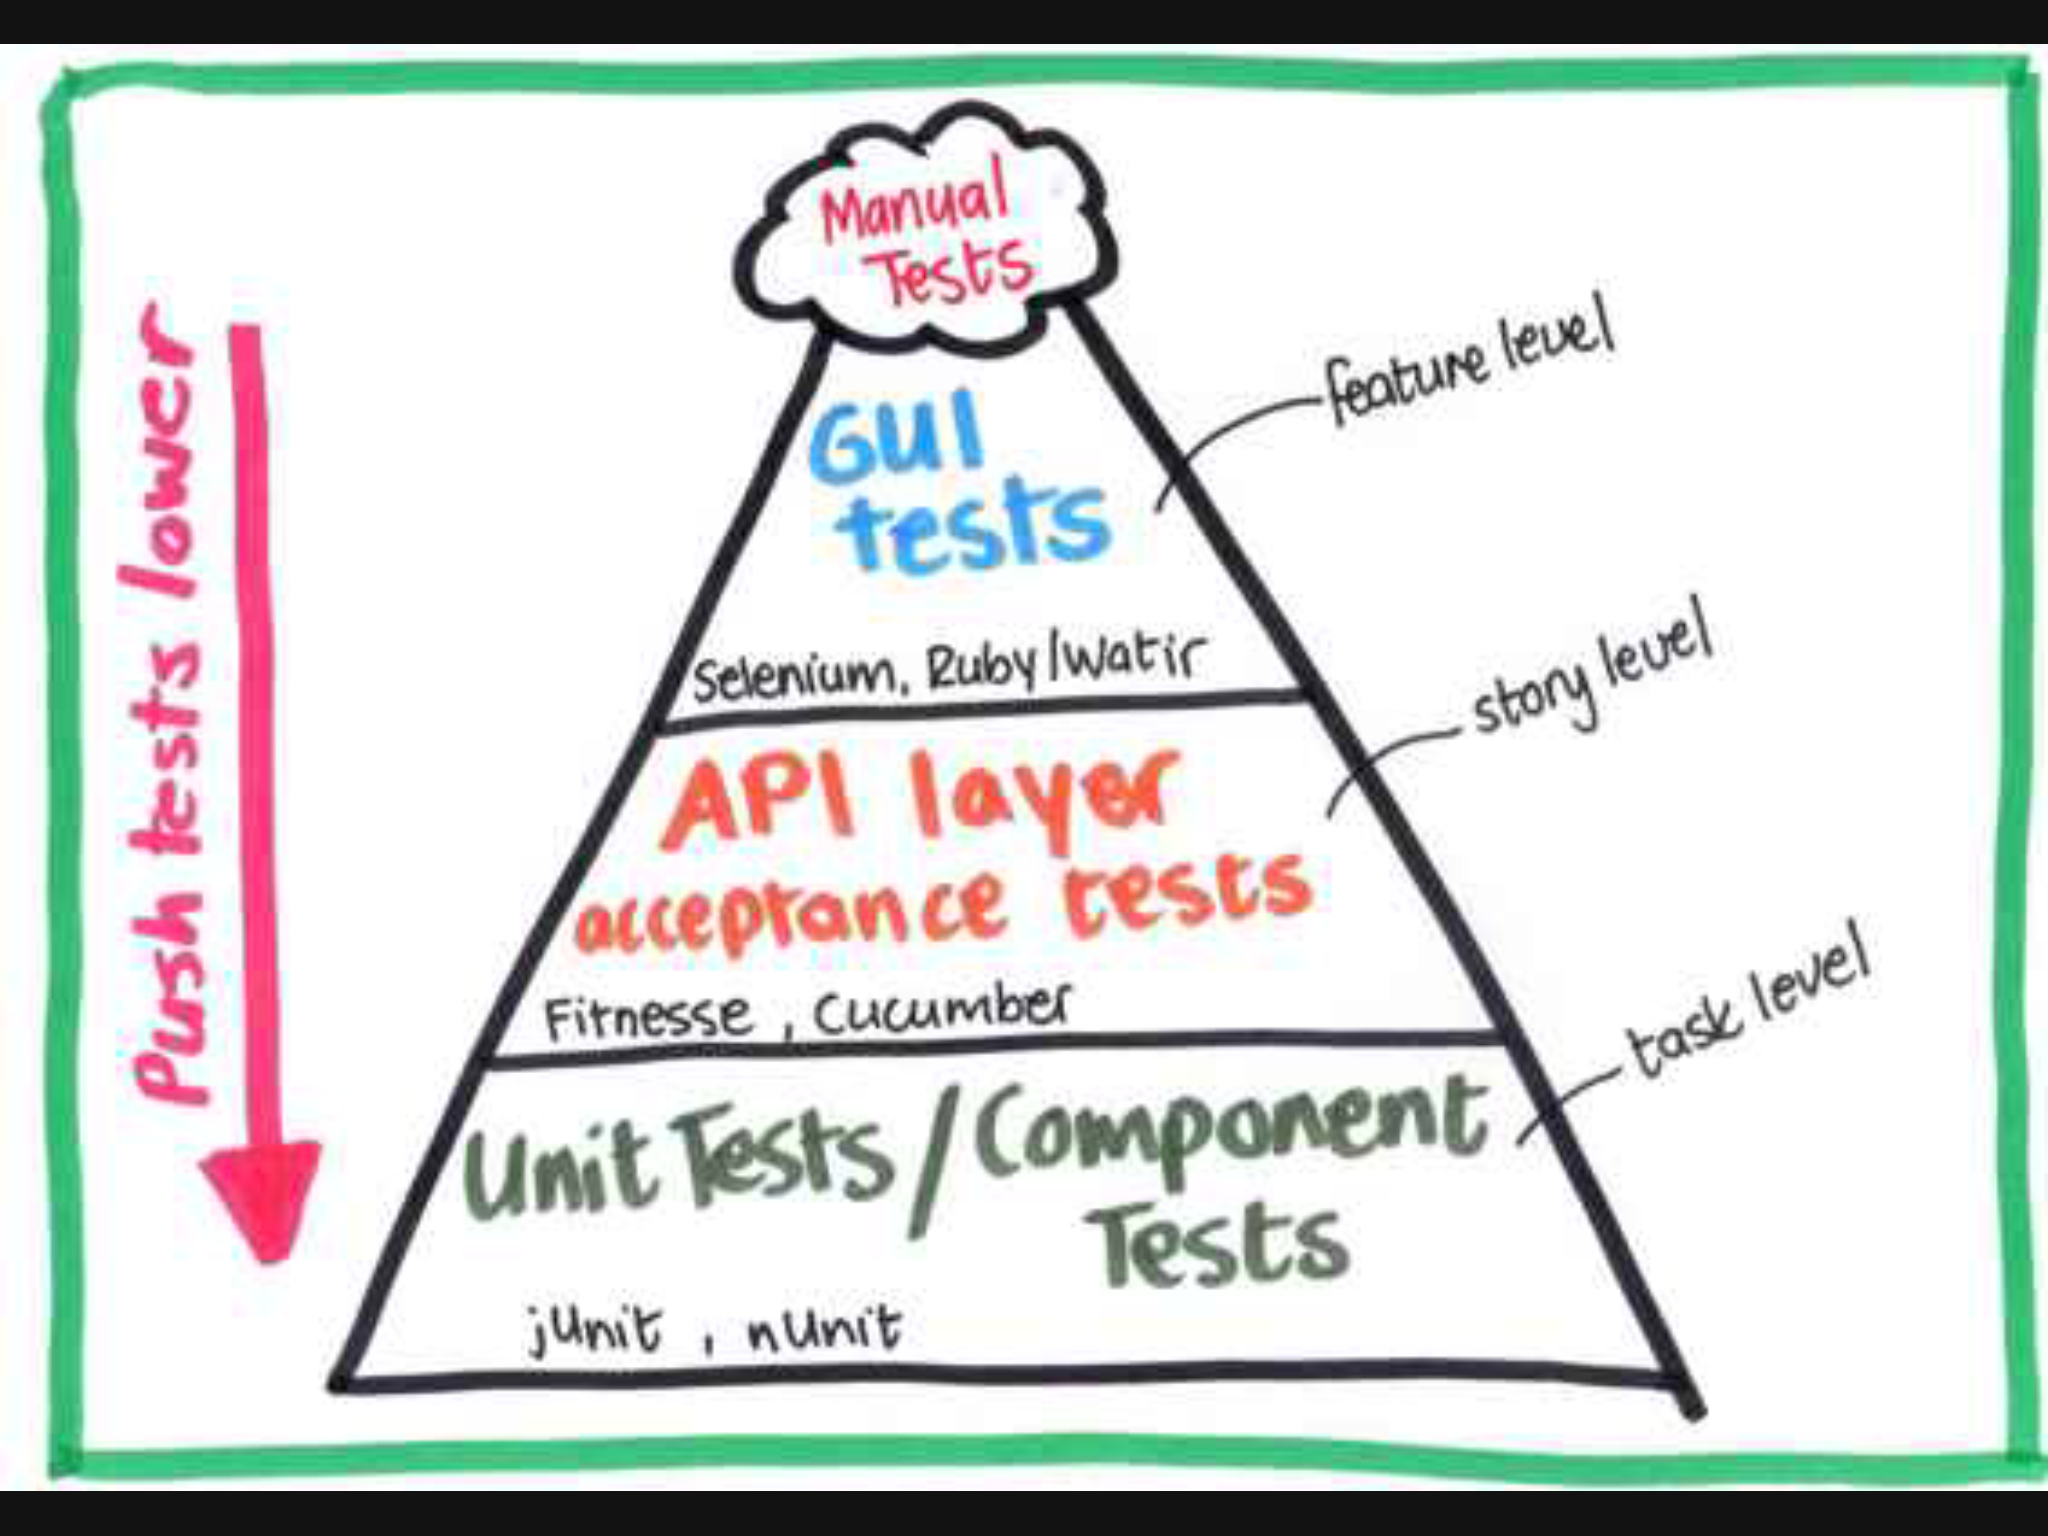 Manual
Tests
GUI
tests
Selenium, Ruby/Watir
feature level
API layer
acceptance tests
Fitnesse, Cucumber
story level
Unit Tests / Component
Tests
jUnit, nUnit
task level
Push tests lower